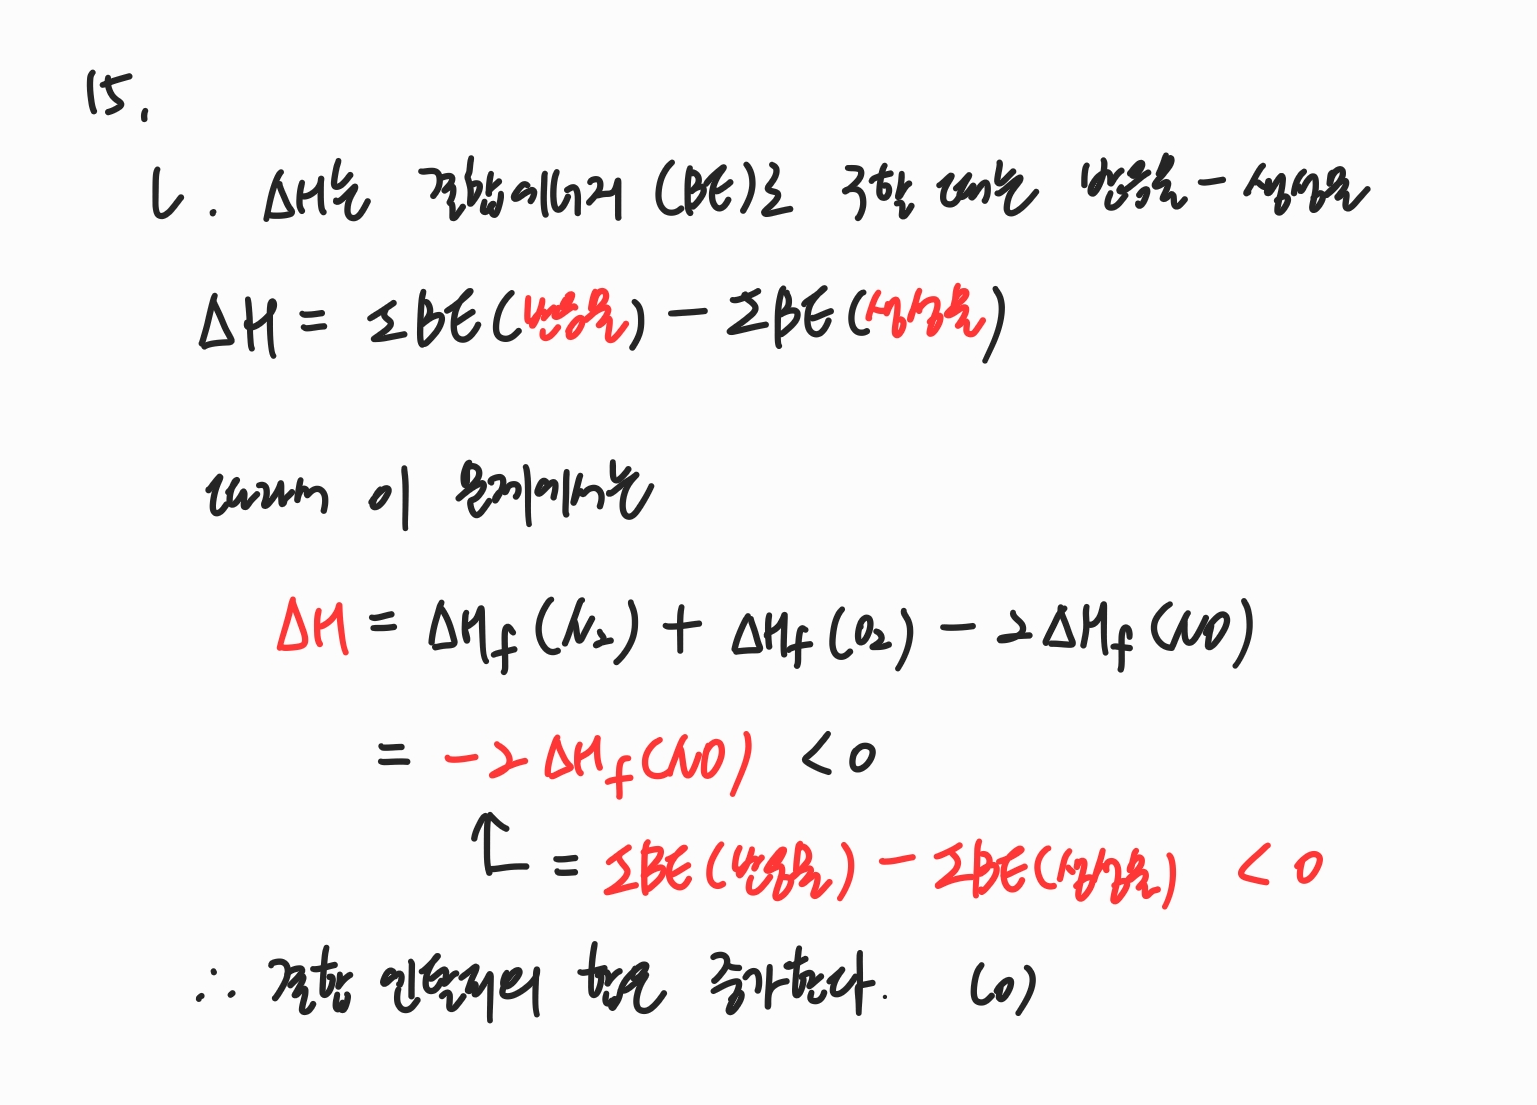 15.
ㄴ. ΔH는 결합에너지 (BE)로 구할 때는 반응물 - 생성물
ΔH = ΣBE(반응물) - ΣBE(생성물)
따라서 이 문제에서는
ΔH = ΔHf(N₂) + ΔHf(O₂) - 2ΔHf(NO)
= -2ΔHf(NO) < 0
↑ = ΣBE(반응물) - ΣBE(생성물) < 0
∴ 결합 엔탈피의 합은 증가한다. (o)